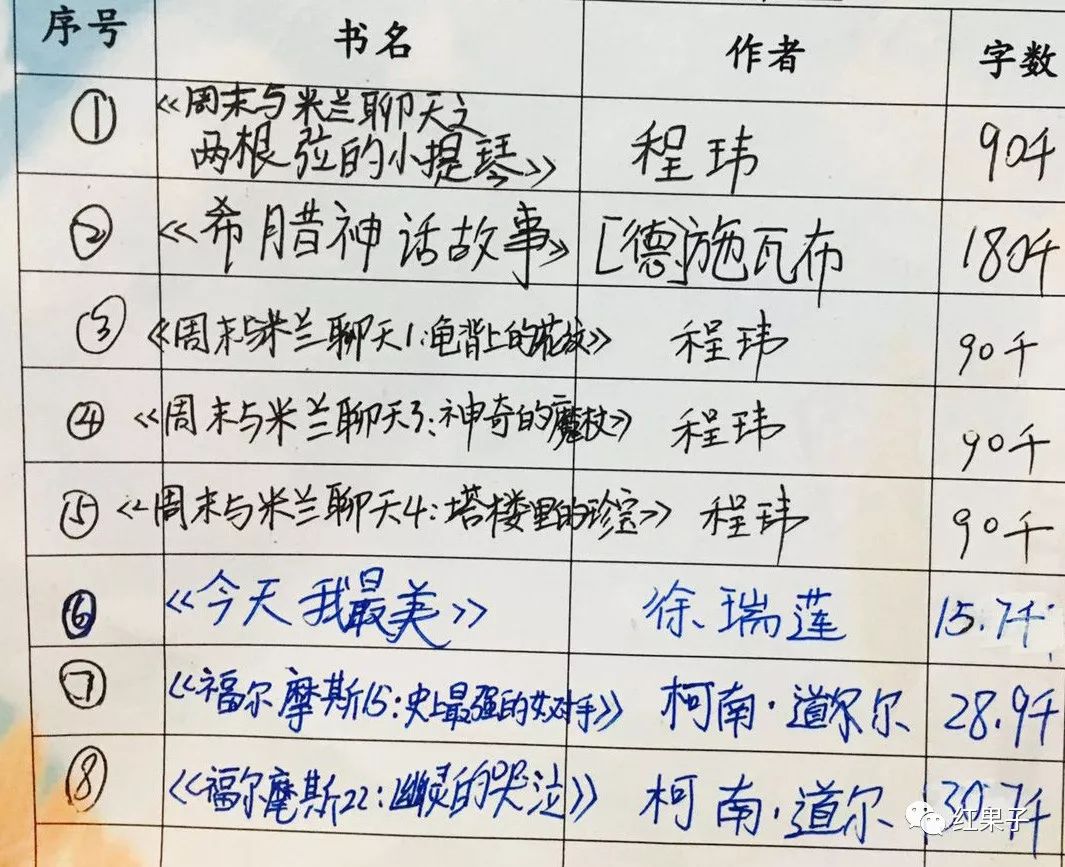 序号 书名 作者 字数
① 《周末与米兰聊天之
两根弦的小提琴》 程玮 90千
② 《希腊神话故事》 [德]施瓦布 180千
③ 《周末与米兰聊天1:龟背上的花纹》 程玮 90千
④ 《周末与米兰聊天3:神奇的魔杖》 程玮 90千
⑤ 《周末与米兰聊天4:塔楼里的珍宝》 程玮 90千
⑥ 《今天我最美》 徐瑞莲 15.7千
⑦ 《福尔摩斯15:史上最强的女对手》 柯南·道尔 28.9千
⑧ 《福尔摩斯22:幽灵的哭泣》 柯南·道尔 30.7千
红果子